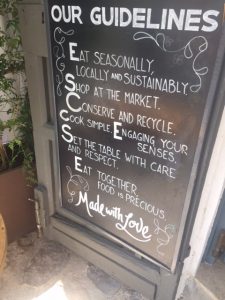 OUR GUIDELINES
EAT SEASONALLY,
LOCALLY AND SUSTAINABLY
SHOP AT THE MARKET.
CONSERVE AND RECYCLE.
COOK SIMPLE, ENGAGING YOUR
SENSES.
SET THE TABLE WITH CARE
AND RESPECT.
EAT TOGETHER
FOOD IS PRECIOUS
Made with Love